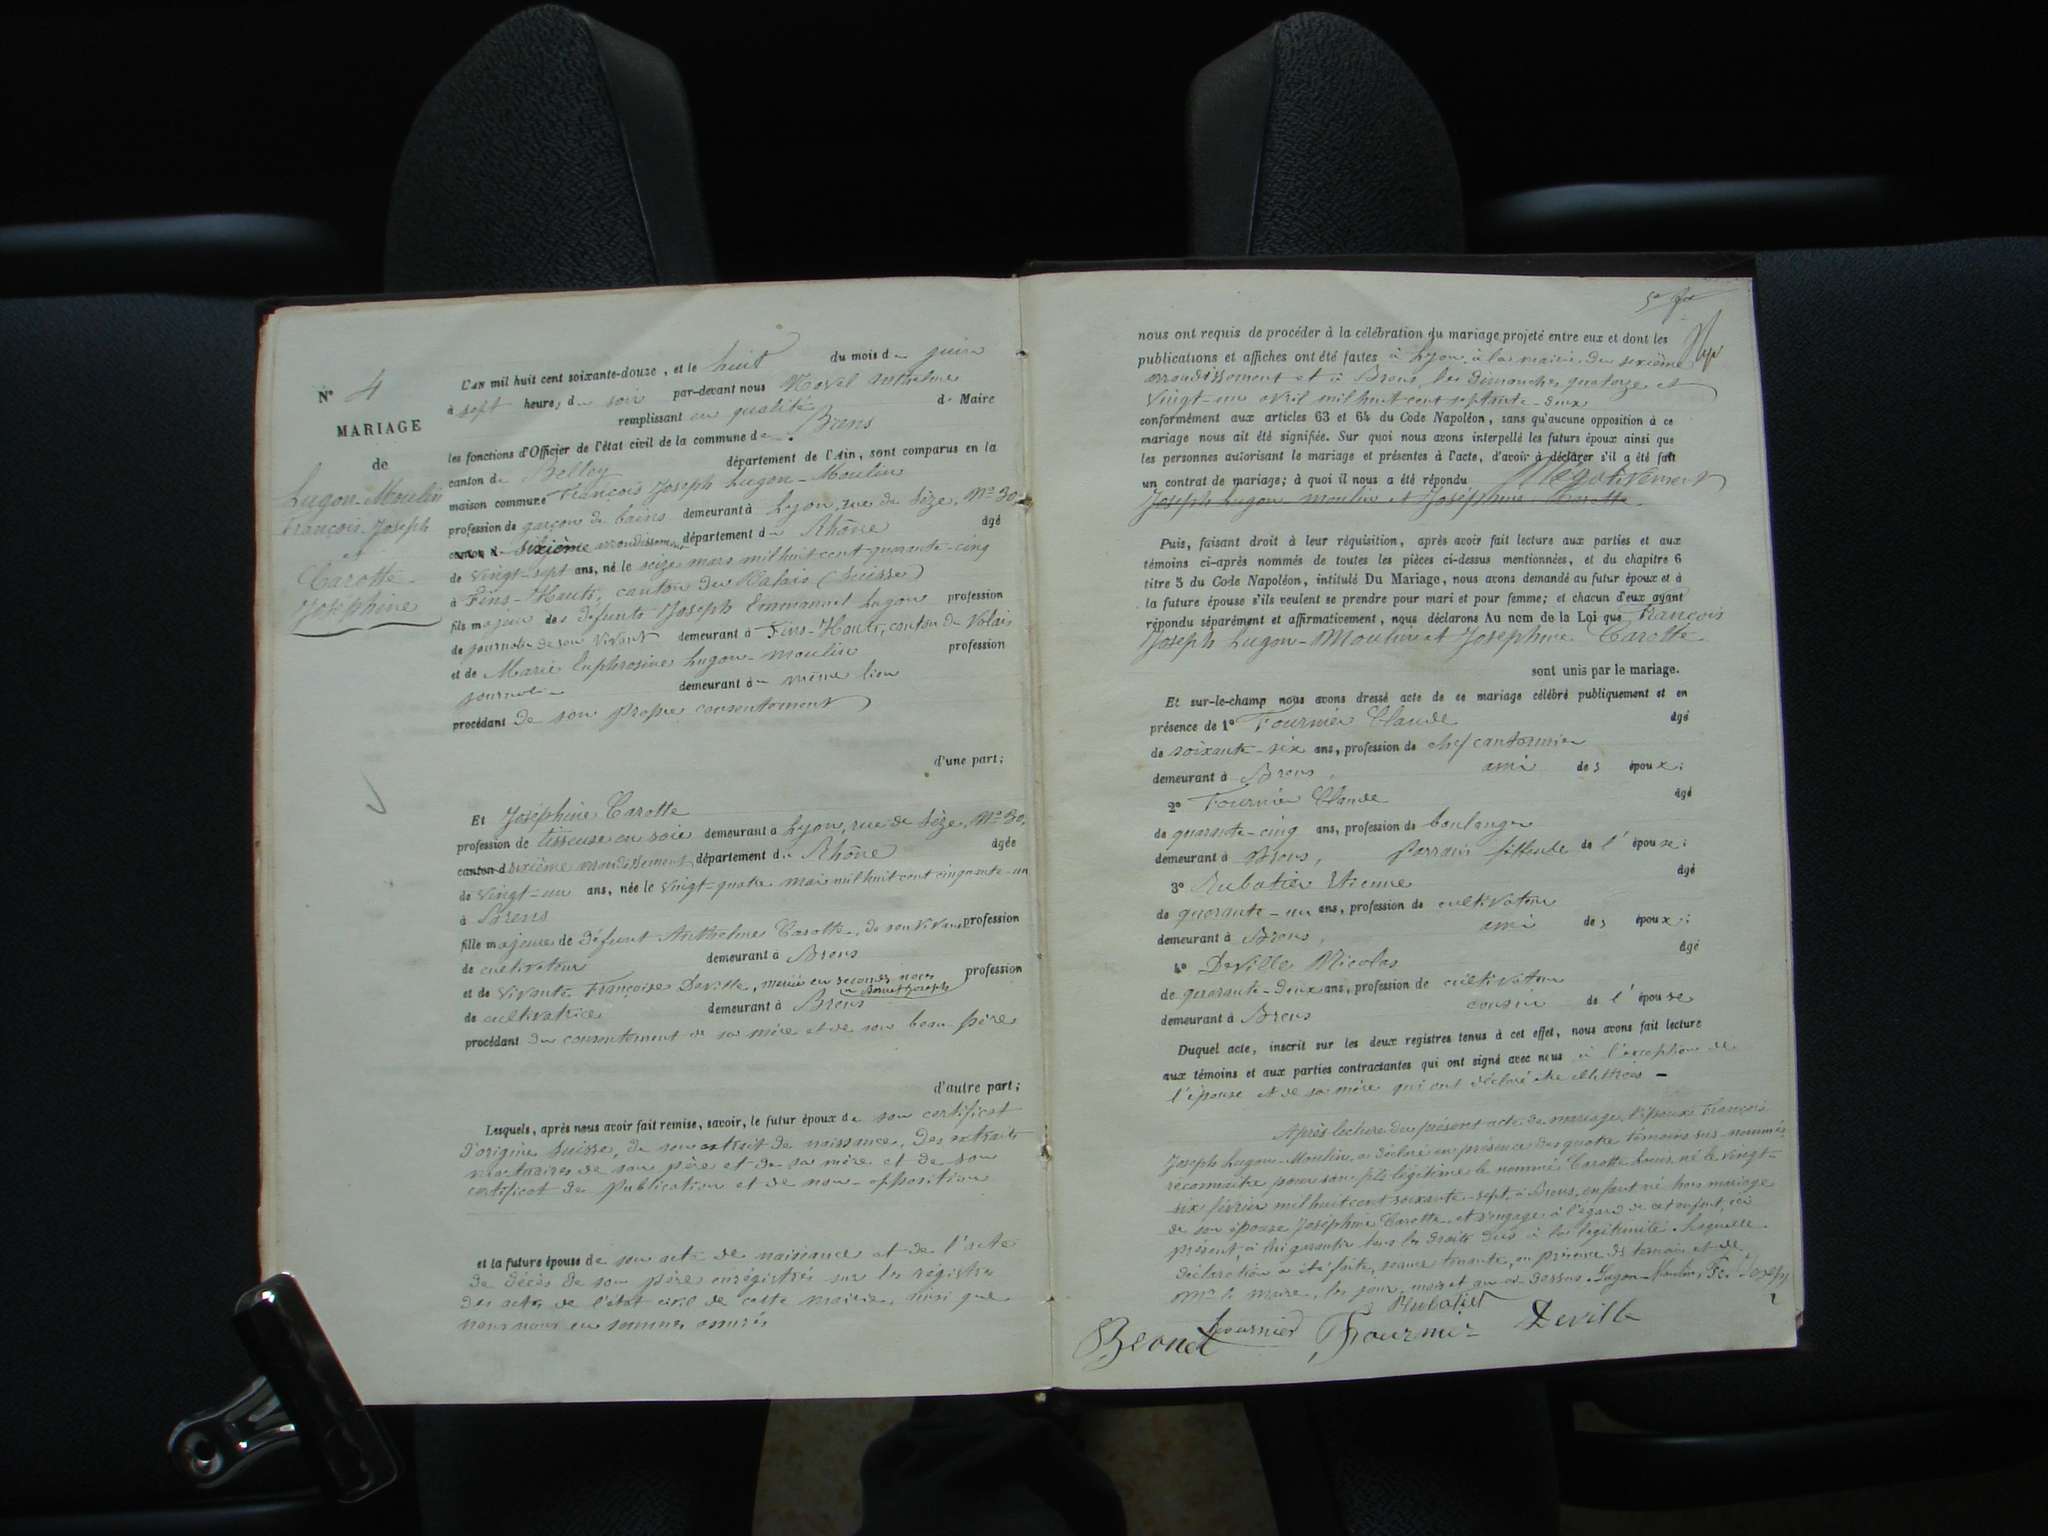 N° 4
MARIAGE
de
Lugon-Moulin
François-Joseph
et
Carotte
Joséphine
L'AN mil huit cent soixante-douze, et le huit du mois de juin
à sept heures du soir par-devant nous Anthelme
remplissant en qualité de Maire
les fonctions d'Officier de l'état civil de la commune de Brens
canton de Belley département de l'Ain, sont comparus en la
maison commune François Joseph Lugon-Moulin
profession de garçon de bains demeurant à Lyon, rue de Sèze, N° 30
canton d sixième arrondissement département du Rhône âgé
de vingt-sept ans, né le seize mars mil huit cent quarante-cinq
à Fins-Hauts, canton du Valais (Suisse)
fils majeur des défunts Joseph Emmanuel Lugon profession
de journalier de son vivant demeurant à Fins-Hauts, canton du Valais
et de Marie Euphrosine Lugon-Moulin profession
demeurant au même lieu
procédant de son propre consentement
d'une part;
Et Joséphine Carotte
profession de tisseuse en soie demeurant à Lyon, rue de Sèze, N° 30,
canton d sixième arrondissement, département du Rhône âgée
de vingt-un ans, née le vingt-quatre mai mil huit cent cinquante-un
à Brens
fille majeure de défunt Anthelme Carotte, de son vivant profession
de cultivateur demeurant à Brens
et de vivante Françoise Deville, mariée en secondes noces profession
Joseph
de cultivatrice demeurant à Brens
procédant du consentement de sa mère et de son beau-père
d'autre part;
Lesquels, après nous avoir fait remise, savoir, le futur époux de son certificat
d'origine Suisse, de son extrait de naissance, des extraits
mortuaires de son père et de sa mère et de son
certificat de publication et de non-opposition
et la future épouse de son acte de naissance et de l'acte
de décès de son père enrégistrés sur les régistres
des actes de l'état civil de cette mairie, ainsi que
nous nous en sommes assurés
nous ont requis de procéder à la célébration du mariage projeté entre eux et dont les
publications et affiches ont été faites à Lyon à la mairie du sixième
arrondissement et à Brens, les dimanches quatorze et
vingt-un avril mil huit cent septante-deux
conformément aux articles 63 et 64 du Code Napoléon, sans qu'aucune opposition à ce
mariage nous ait été signifiée. Sur quoi nous avons interpellé les futurs époux ainsi que
les personnes autorisant le mariage et présentes à l'acte, d'avoir à déclarer s'il a été fait
un contrat de mariage; à quoi il nous a été répondu Négativement
Joseph Lugon Moulin et Joséphine Carotte.
Puis, faisant droit à leur réquisition, après avoir fait lecture aux parties et aux
témoins ci-après nommés de toutes les pièces ci-dessus mentionnées, et du chapitre 6
titre 5 du Code Napoléon, intitulé Du Mariage, nous avons demandé au futur époux et à
la future épouse s'ils veulent se prendre pour mari et pour femme; et chacun d'eux ayant
répondu séparément et affirmativement, nous déclarons Au nom de la Loi que François
Joseph Lugon-Moulin et Joséphine Carotte
sont unis par le mariage.
Et sur-le-champ nous avons dressé acte de ce mariage célébré publiquement et en
présence de 1° Fournier Claude âgé
de soixante-six ans, profession de chef cantonnier
demeurant à Brens, ami des époux;
2° Fournier Claude âgé
de quarante-cinq ans, profession de boulanger
demeurant à Brens, parrain de l'épouse;
3° Rubatier Etienne âgé
de quarante-un ans, profession de cultivateur
demeurant à Brens, ami des époux;
4° Deville Nicolas âgé
de quarante-deux ans, profession de cultivateur
demeurant à Brens cousin de l'épouse
Duquel acte, inscrit sur les deux registres tenus à cet effet, nous avons fait lecture
aux témoins et aux parties contractantes qui ont signé avec nous à l'exception de
l'épouse et de sa mère qui ont déclaré être illettrées
Après lecture du présent acte de mariage, l'époux François
Joseph Lugon-Moulin, a déclaré en présence des quatre témoins sus-nommés
reconnaître pour son fils légitime le nommé Carotte Louis, né le vingt-
six février mil huit cent soixante-sept, à Brens, enfant né hors mariage
de son épouse Joséphine Carotte, et s'engage à l'égard de cet enfant, ici
présent, à lui garantir tous les droits dûs à la légitimité. Laquelle
déclaration a été faite, séance tenante, en présence des témoins et de
Mr le maire, les jour, mois et an ci-dessus. Lugon-Moulin, Fs. Joseph
Rubatier
Fournier Fournier Deville